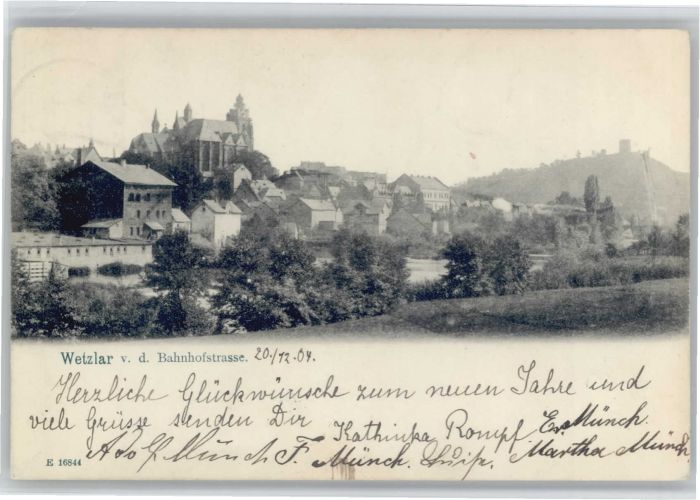 Wetzlar v. d. Bahnhofstrasse. 20./12.04.
Herzliche Glückwünsche zum neuen Jahre und
viele Grüsse senden Dir Kathinka Rompf. E. Münch.
Adolf Münch F. Münch. Martha Münch.
E 16844